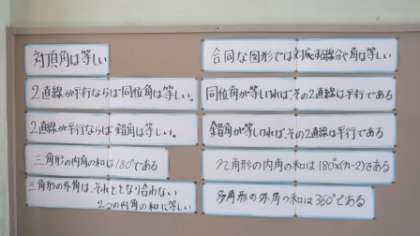 対頂角は等しい
合同な図形では対応する線分や角は等しい
2直線が平行ならば同位角は等しい。
同位角が等しければ、その2直線は平行である
2直線が平行ならば錯角は等しい。
錯角が等しければ、その2直線は平行である
三角形の内角の和は180°である
n角形の内角の和は180°×(n-2)である
三角形の外角は、それととなり合わない
2つの内角の和に等しい
多角形の外角の和は360°である